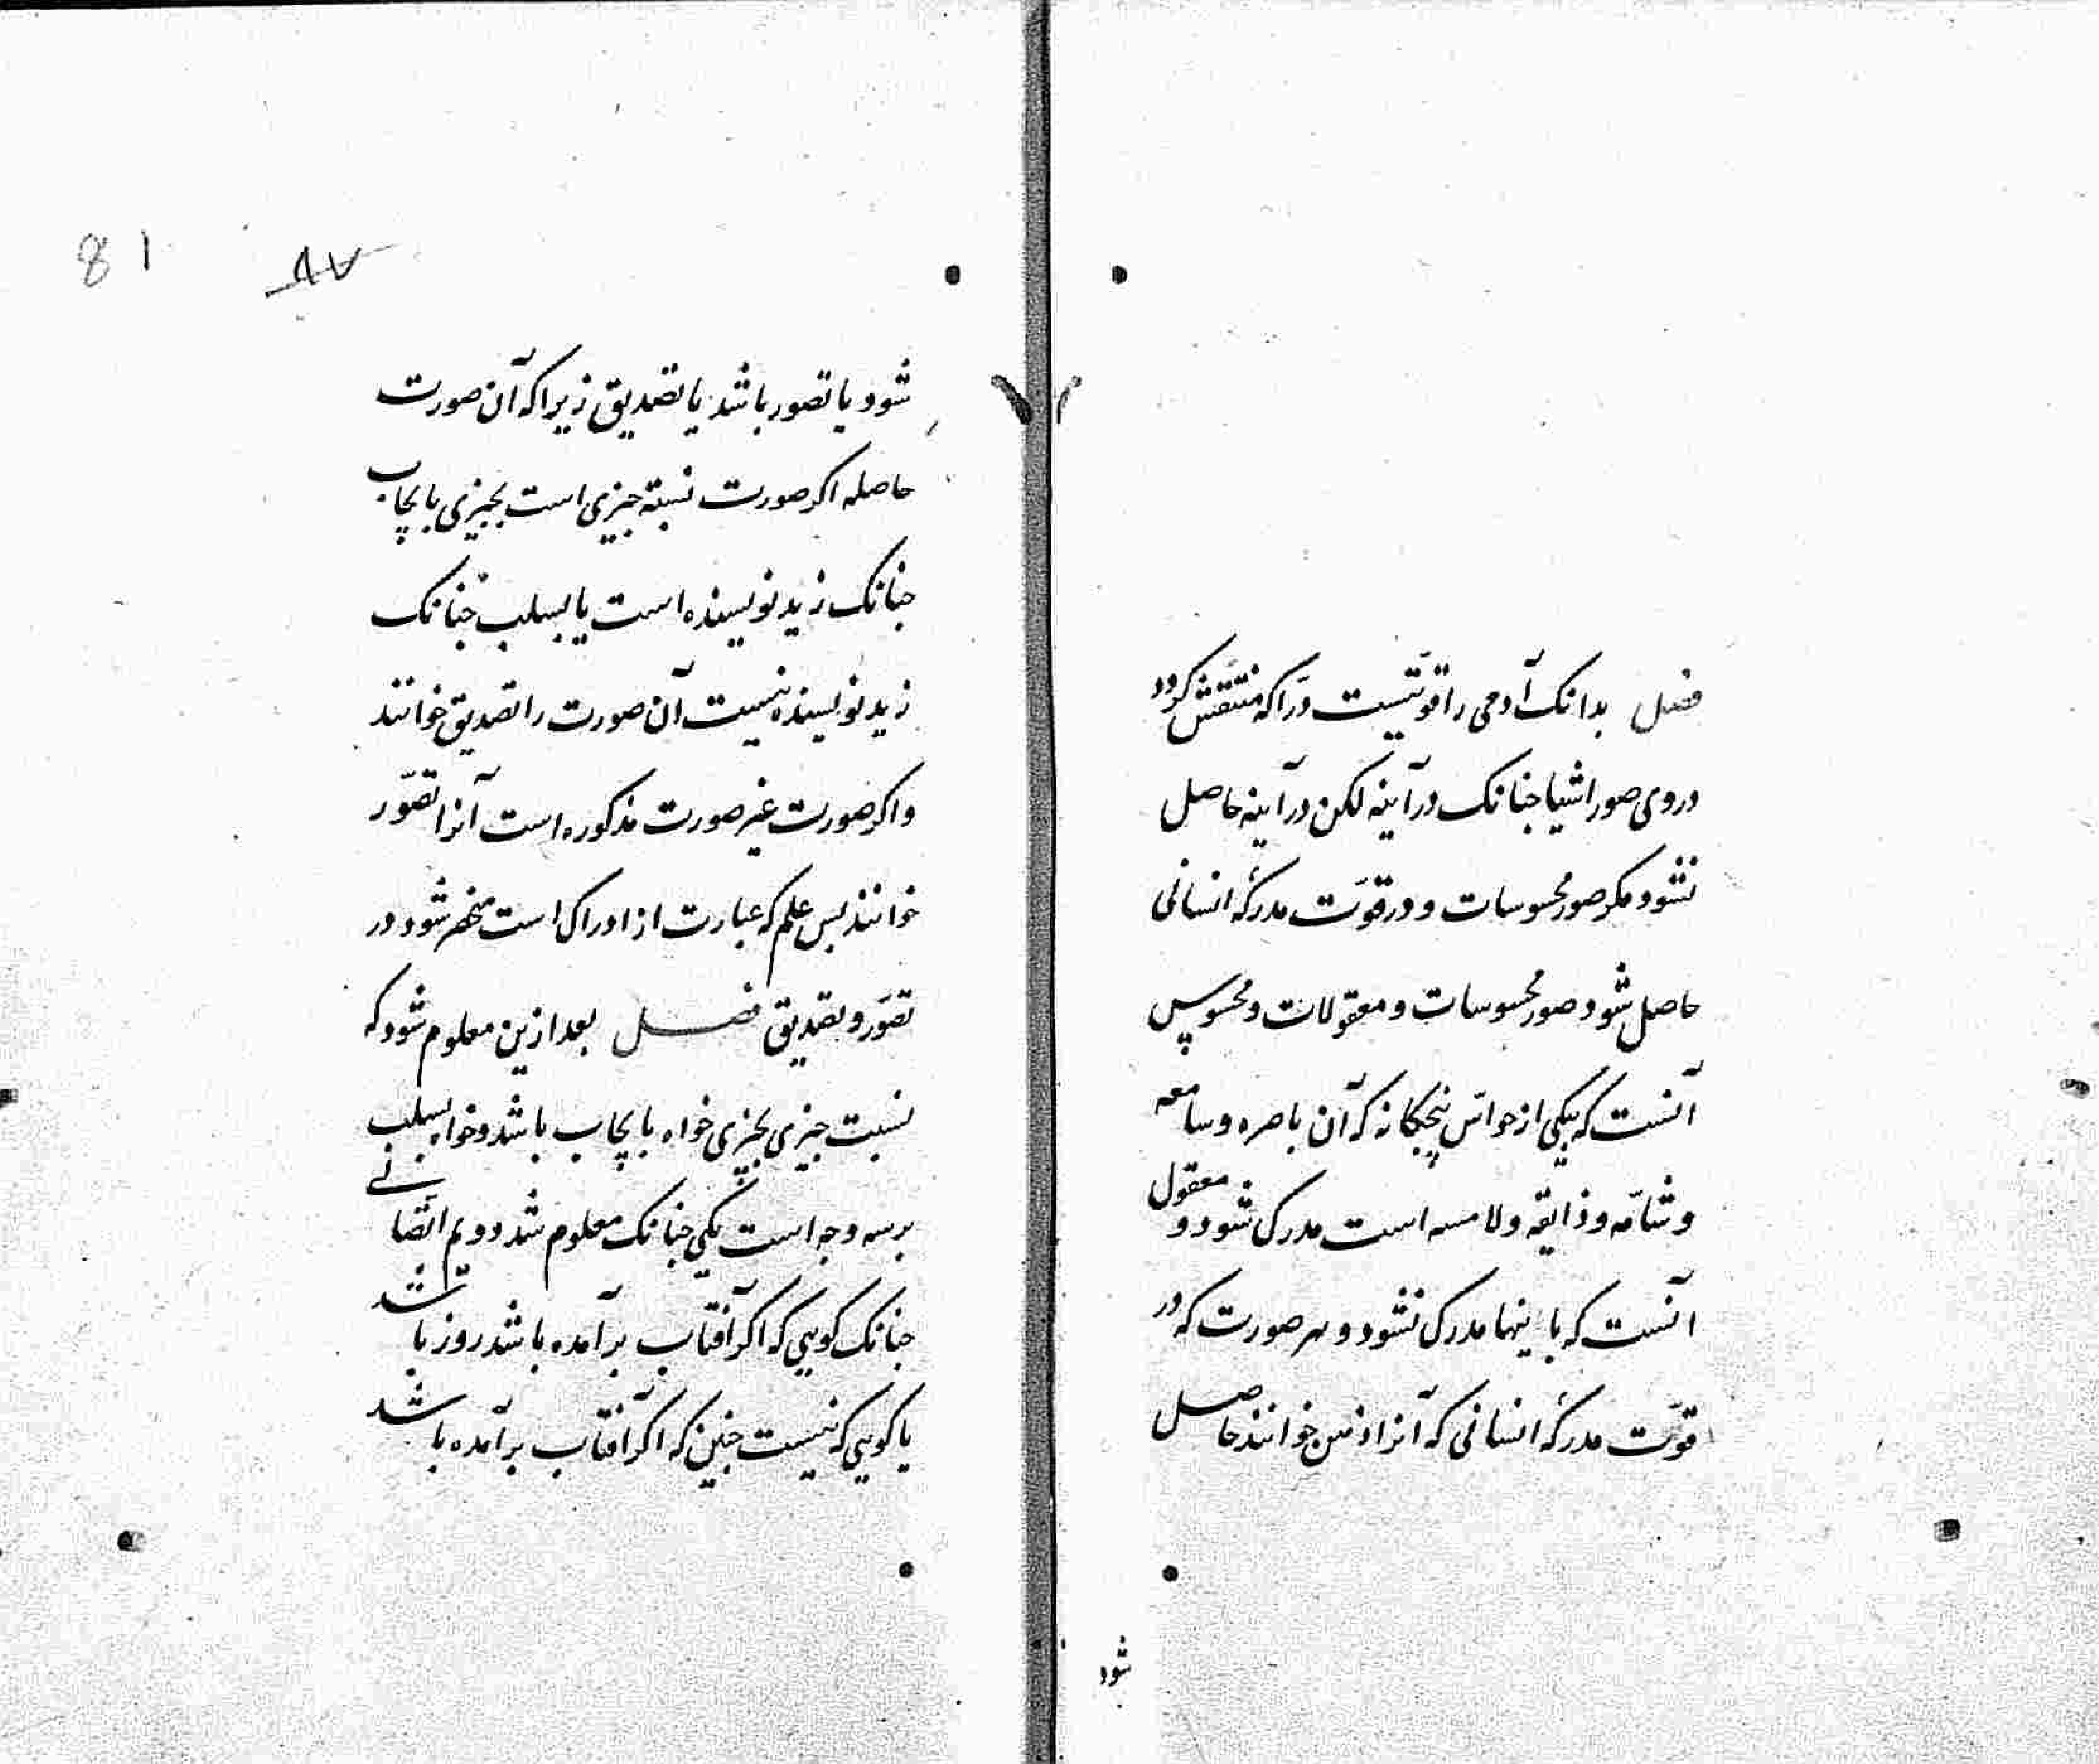 فصل بدانک آدمی را قوتیست درّاکه منتقش کردد
دروی صور اشیا جنانک در آینه لکن در آینه حاصل
نشود مکر صور محسوسات و در قوّت مدرکهٔ انسانی
حاصل شود صور محسوسات و معقولات و محسوس
آنست که بیکی از حواسّ پنجکانه که آن باصره و سامعه
و شامّه و ذایقه و لامسه است مدرک شود و معقول
آنست که باینها مدرک نشود و هر صورت که در
قوّت مدرکهٔ انسانی که آنرا ذهن خوانند حاصل
شود
81
شود یا تصور باشد یا تصدیق زیرا که آن صورت
حاصله اکر صورت نسبة جیزی است بجیزی بایجاب
جنانک زید نویسنده است یا بسلب جنانک
زید نویسنده نیست آن صورت را تصدیق خوانند
و اکر صورت غیر صورت مذکوره است آنرا تصوّر
خوانند بس علم که عبارت از ادراک است منحصر شود در
تصوّر و تصدیق فصل بعد ازین معلوم شود که
نسبت جیزی بجیزی خواه بایجاب باشد و خواه بسلب
بر سه وجه است یکی جنانک معلوم شد دویم اتّصالی
جنانک کویی که اکر آفتاب برآمده باشد روز باشد
یا کویی که نیست جنین که اکر آفتاب برآمده باشد